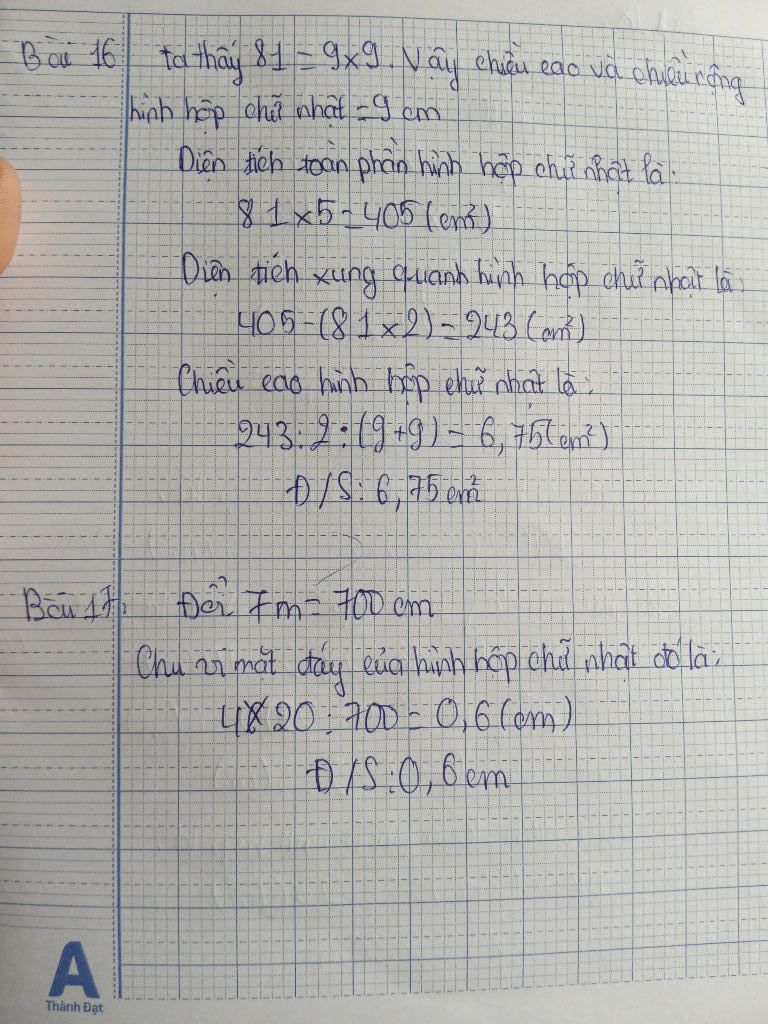 Bài 16 ta thấy 81 = 9x9. Vậy chiều cao và chiều rộng
hình hộp chữ nhật = 9 cm
Diện tích toàn phần hình hộp chữ nhật là:
81 x 5 = 405 (cm²)
Diện tích xung quanh hình hộp chữ nhật là:
405 - (81 x 2) = 243 (cm²)
Chiều cao hình hộp chữ nhật là:
243 : 2 : (9 + 9) = 6,75 (cm²)
Đ/S: 6,75 cm²
Bài 17: Đổi 7m = 700 cm
Chu vi mặt đáy của hình hộp chữ nhật đó là:
420 : 700 = 0,6 (cm)
Đ/S: 0,6 cm
A
Thành Đạt